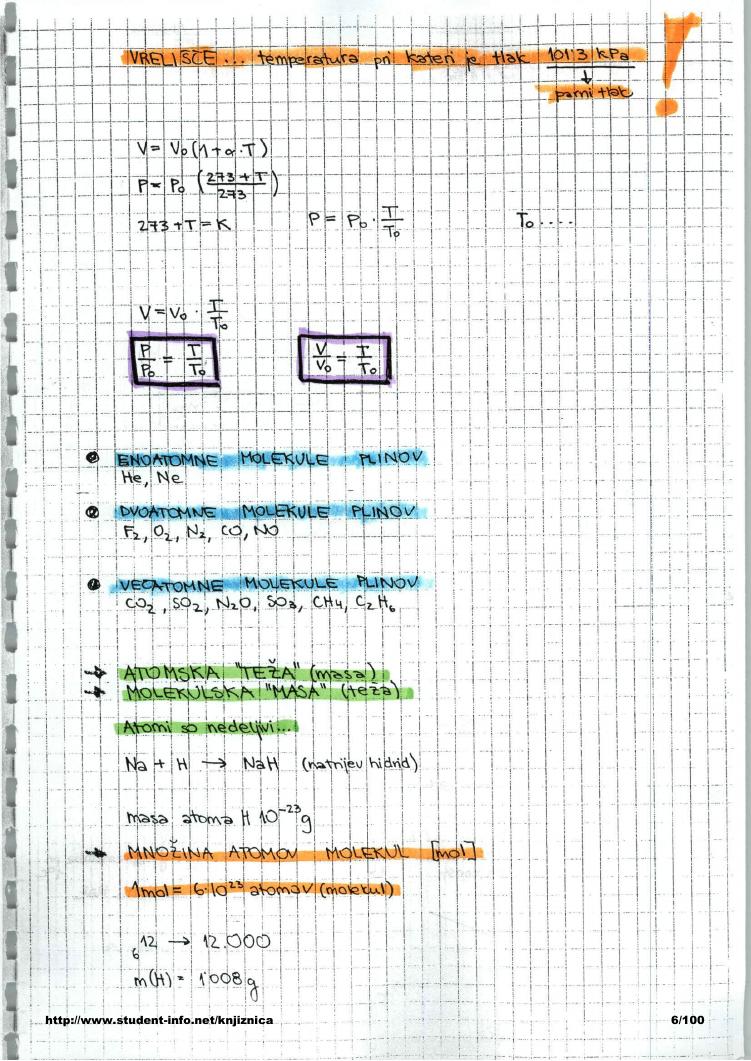 VRELIŠČE... temperatura pri kateri je tlak 101'3 kPa
↓
parni tlak
!
V = V₀ (1 + α · T)
P = P₀ (273 + T / 273)
273 + T = K P = P₀ · T / T₀ T₀ ....
V = V₀ · T / T₀
P / P₀ = T / T₀ V / V₀ = T / T₀
ENOATOMNE MOLEKULE PLINOV
He, Ne
DVOATOMNE MOLEKULE PLINOV
F₂, O₂, N₂, CO, NO
VEČATOMNE MOLEKULE PLINOV
CO₂, SO₂, N₂O, SO₃, CH₄, C₂H₆
→ ATOMSKA "TEŽA" (masa)
→ MOLEKULSKA "MASA" (teža)
Atomi so nedeljivi...
Na + H → NaH (natrijev hidrid)
masa atoma H 10⁻²³ g
→ MNOŽINA ATOMOV MOLEKUL [mol]
1mol = 6·10²³ atomov (molekul)
₆12 → 12.000
m(H) = 1'008 g
http://www.student-info.net/knjiznica 6/100